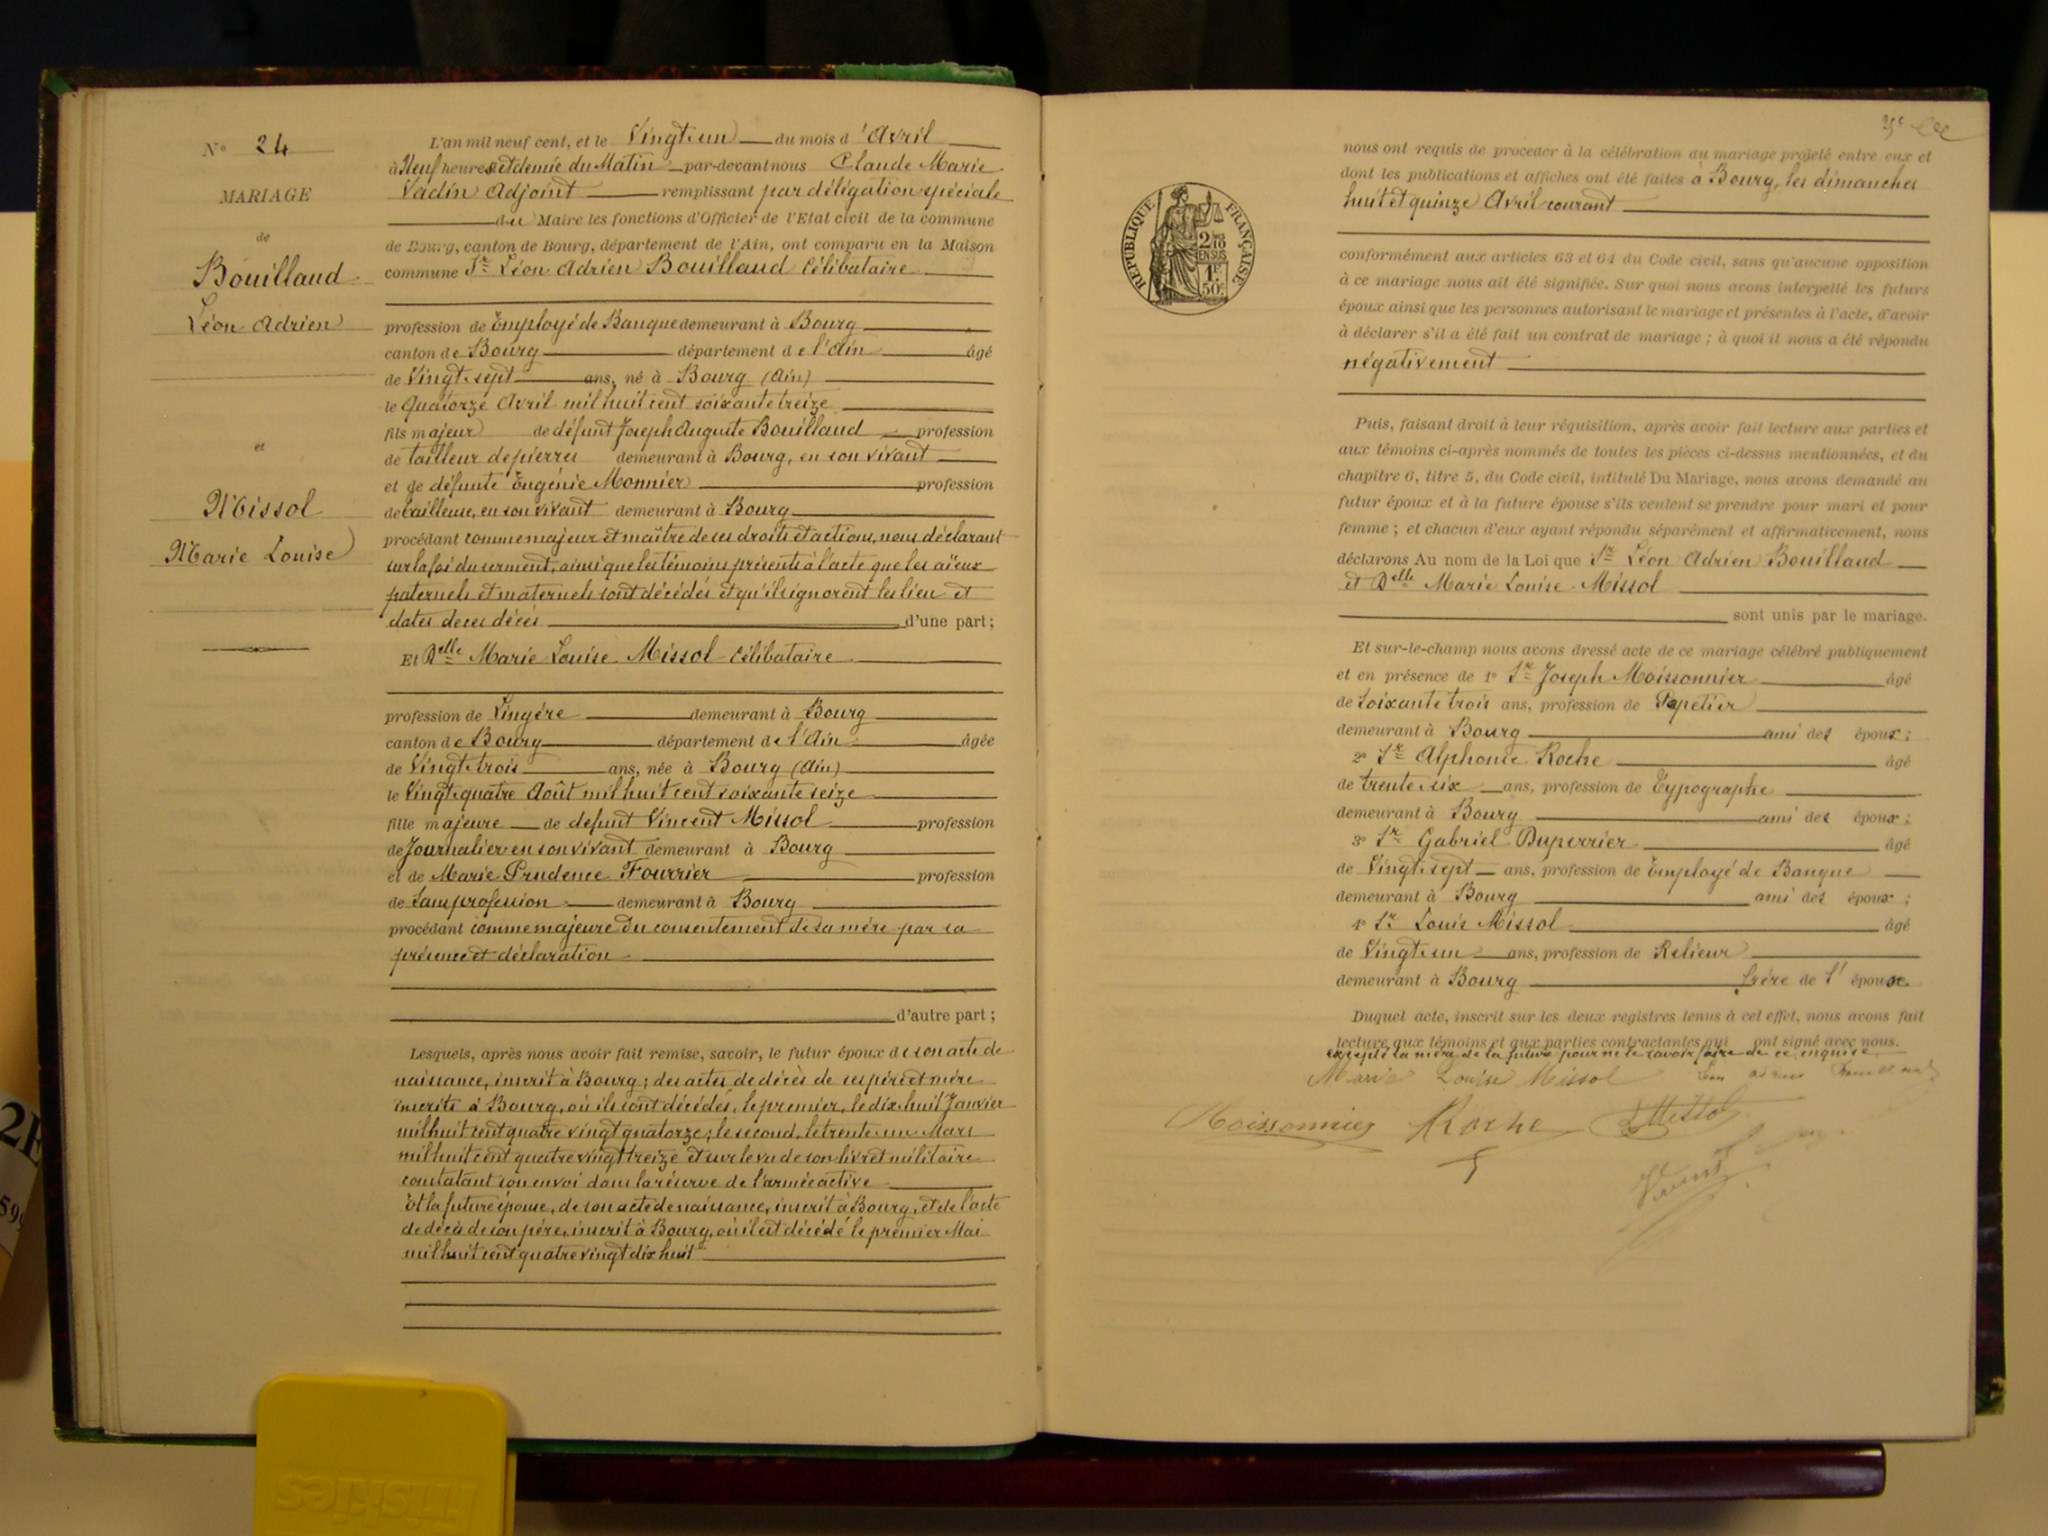 N° 24
MARIAGE
de
Bouilland
Léon Adrien
et
Missol
Marie Louise
L'an mil neuf cent, et le Vingt-un du mois d'Avril
à Neuf heures et demie du Matin par-devant nous Claude Marie
Vadin Adjoint remplissant par délégation spéciale
du Maire les fonctions d'Officier de l'Etat civil de la commune
de Bourg, canton de Bourg, département de l'Ain, ont comparu en la Maison
commune Sr Léon Adrien Bouilland Célibataire
profession de Employé de Banque demeurant à Bourg
canton de Bourg département de l'Ain âgé
de Vingt-sept ans, né à Bourg (Ain)
le Quatorze Avril mil huit cent soixante treize
fils majeur de défunt Joseph Auguste Bouilland profession
de tailleur de pierres demeurant à Bourg, en son vivant
et de défunte Eugénie Monnier profession
de tailleuse, en son vivant demeurant à Bourg
procédant comme majeur et maître de ses droits et actions, nous déclarant
sur la foi du serment, ainsi que les témoins présents à l'acte que les aïeux
paternels et maternels sont décédés et qu'ils ignorent les lieu et
dates de ces décès d'une part;
Et Delle Marie Louise Missol Célibataire
profession de Lingère demeurant à Bourg
canton de Bourg département de l'Ain âgée
de Vingt-trois ans, née à Bourg (Ain)
le Vingt-quatre Août mil huit cent soixante seize
fille majeure de défunt Vincent Missol profession
de Journalier en son vivant demeurant à Bourg
et de Marie Prudence Fourrier profession
de Sans profession demeurant à Bourg
procédant comme majeure du consentement de sa mère par sa
présence et déclaration
d'autre part;
Lesquels, après nous avoir fait remise, savoir, le futur époux de son acte de
naissance, inscrit à Bourg; des actes de décès de ses père et mère
inscrits à Bourg, où ils sont décédés, le premier, le dix-huit Janvier
mil huit cent quatre vingt quatorze; le second, le trente-un Mars
mil huit cent quatre vingt treize et sur le vu de son livret militaire
constatant son envoi dans la réserve de l'armée active
Et la future épouse, de son acte de naissance, inscrit à Bourg, et de l'acte
de décès de son père, inscrit à Bourg, où il est décédé le premier Mai
mil huit cent quatre vingt dix huit
RÉPUBLIQUE FRANÇAISE
2/10 EN SUS
1F 50c
nous ont requis de procéder à la célébration du mariage projeté entre eux et
dont les publications et affiches ont été faites à Bourg, les dimanches
huit et quinze Avril courant
conformément aux articles 63 et 64 du Code civil, sans qu'aucune opposition
à ce mariage nous ait été signifiée. Sur quoi nous avons interpellé les futurs
époux ainsi que les personnes autorisant le mariage et présentes à l'acte, d'avoir
à déclarer s'il a été fait un contrat de mariage; à quoi il nous a été répondu
négativement
Puis, faisant droit à leur réquisition, après avoir fait lecture aux parties et
aux témoins ci-après nommés de toutes les pièces ci-dessus mentionnées, et du
chapitre 6, titre 5, du Code civil, intitulé Du Mariage, nous avons demandé au
futur époux et à la future épouse s'ils veulent se prendre pour mari et pour
femme; et chacun d'eux ayant répondu séparément et affirmativement, nous
déclarons Au nom de la Loi que Sr Léon Adrien Bouilland
et Delle Marie Louise Missol
sont unis par le mariage.
Et sur-le-champ nous avons dressé acte de ce mariage célébré publiquement
et en présence de 1° Sr Joseph Moissonnier âgé
de Soixante trois ans, profession de Papetier
demeurant à Bourg ami des époux;
2° Sr Alphonse Roche âgé
de trente-six ans, profession de Typographe
demeurant à Bourg ami des époux;
3° Sr Gabriel Duperrier âgé
de Vingt-sept ans, profession de Employé de Banque
demeurant à Bourg ami des époux;
4° Sr Louis Missol âgé
de Vingt-un ans, profession de Relieur
demeurant à Bourg frère de l'épouse
Duquel acte, inscrit sur les deux registres tenus à cet effet, nous avons fait
lecture aux témoins et aux parties contractantes qui ont signé avec nous.
excepté la mère de la future pour ne le savoir faire de ce enquise
Marie Louise Missol
Moissonnier Roche L Missol